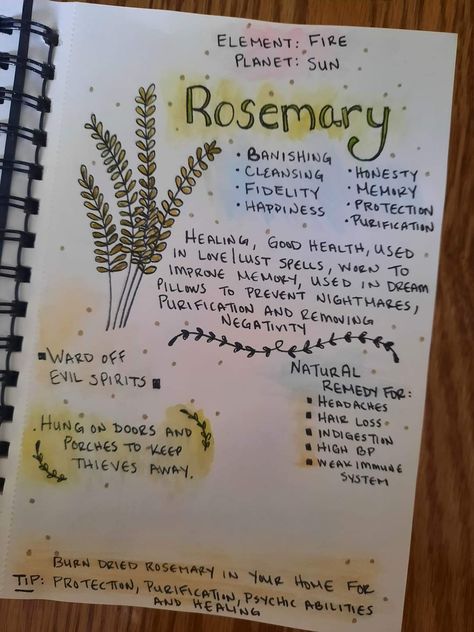 ELEMENT: FIRE
PLANET: SUN
Rosemary
• BANISHING
• CLEANSING
• FIDELITY
• HAPPINESS
• HONESTY
• MEMORY
• PROTECTION
• PURIFICATION
HEALING, GOOD HEALTH, USED
IN LOVE/LUST SPELLS, WORN TO
IMPROVE MEMORY, USED IN DREAM
PILLOWS TO PREVENT NIGHTMARES,
PURIFICATION AND REMOVING
NEGATIVITY
▪ WARD OFF
EVIL SPIRITS ▪
. HUNG ON DOORS AND
PORCHES TO KEEP
THIEVES AWAY.
NATURAL
REMEDY FOR:
▪ HEADACHES
▪ HAIR LOSS
▪ INDIGESTION
▪ HIGH BP
▪ WEAK IMMUNE
SYSTEM
BURN DRIED ROSEMARY IN YOUR HOME FOR
TIP: PROTECTION, PURIFICATION, PSYCHIC ABILITIES
AND HEALING